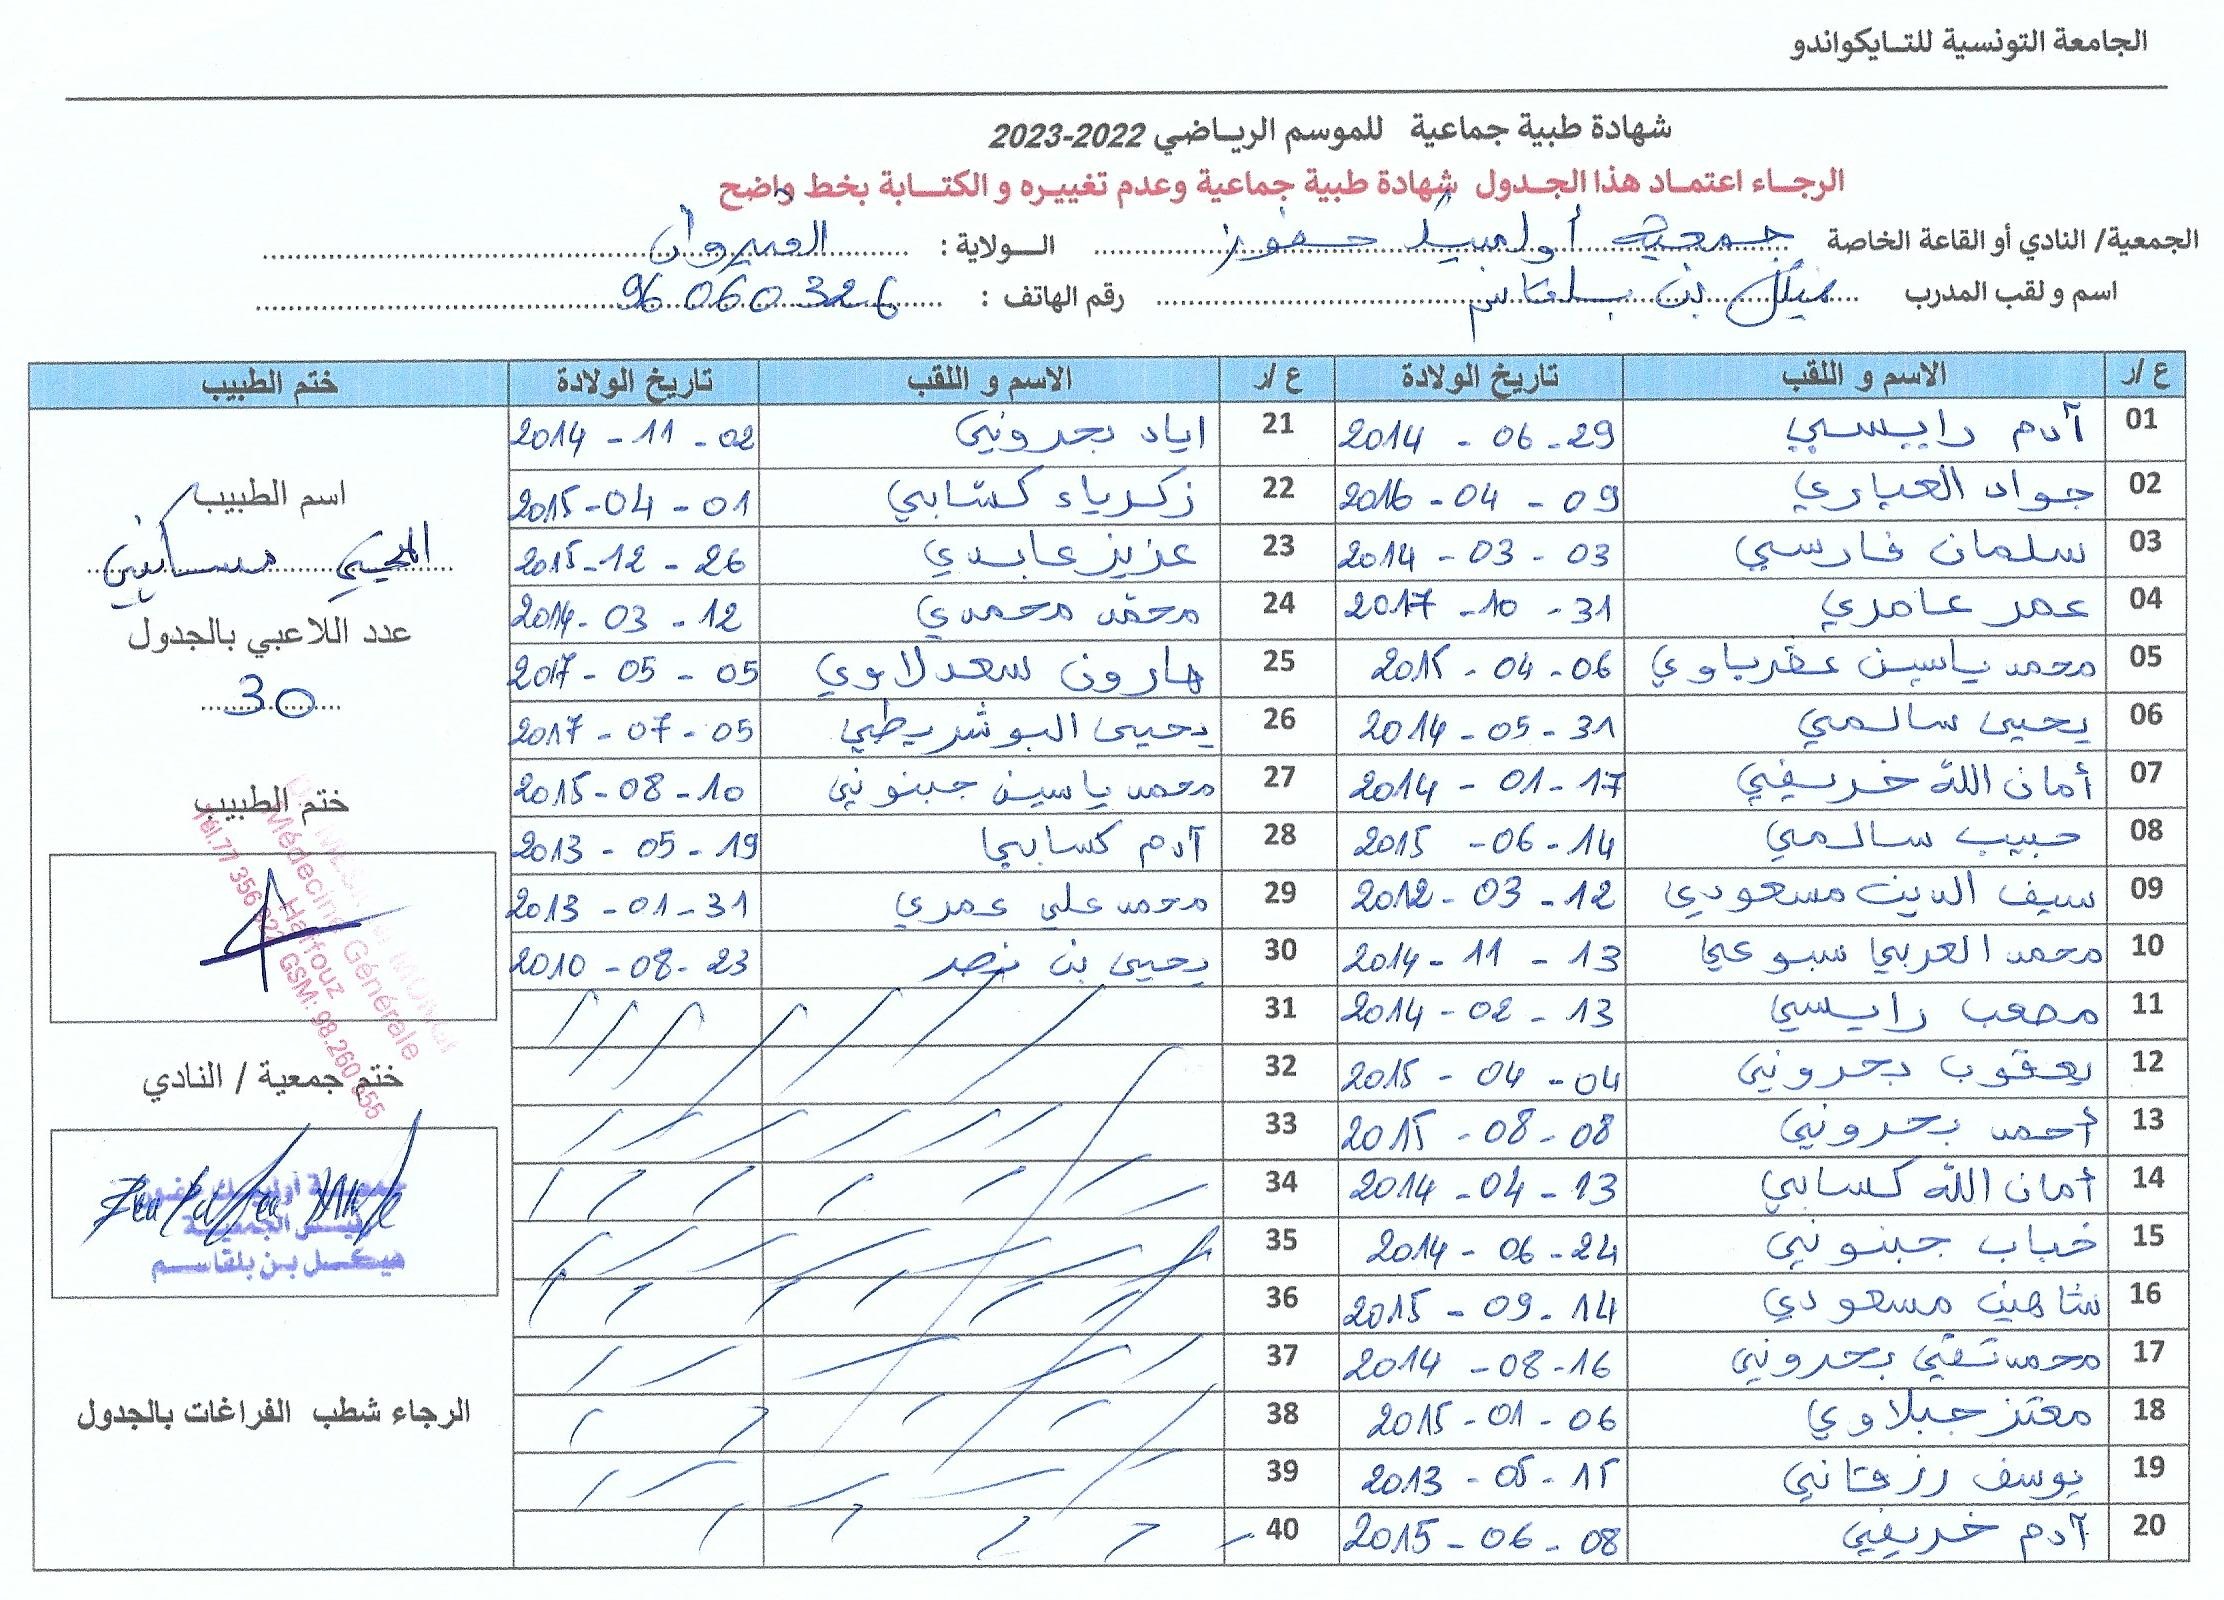 الجامعة التونسية للتايكواندو
شهادة طبية جماعية للموسم الرياضي 2022-2023
الرجاء اعتماد هذا الجدول شهادة طبية جماعية وعدم تغييره و الكتابة بخط واضح
الجمعية/ النادي أو القاعة الخاصة جمعية أولمبيك حفوز الولاية : القيروان
اسم و لقب المدرب هيكل بن بلقاسم رقم الهاتف : 96 060 326
ع /ر الاسم و اللقب تاريخ الولادة ع /ر الاسم و اللقب تاريخ الولادة ختم الطبيب
01 آدم رايسي 2014 - 06 - 29 21 اياد بحروني 2014 - 11 - 02
02 جواد العياري 2016 - 04 - 09 22 زكرياء كسابي 2015 - 04 - 01
03 سلمان فارسي 2014 - 03 - 03 23 عزيز عابدي 2015 - 12 - 26
04 عمر عامري 2017 - 10 - 31 24 محمد محمدي 2014 - 03 - 12
05 محمد ياسين عقرباوي 2015 - 04 - 06 25 هارون سعدلاوي 2017 - 05 - 05
06 يحيى سالمي 2014 - 05 - 31 26 يحيى البوشريطي 2017 - 07 - 05
07 أمان الله خريفي 2014 - 01 - 17 27 محمد ياسين جبنوني 2015 - 08 - 10
08 حبيب سالمي 2015 - 06 - 14 28 آدم كسابي 2013 - 05 - 19
09 سيف الدين مسعودي 2012 - 03 - 12 29 محمد علي عمري 2013 - 01 - 31
10 محمد العربي سبوعي 2014 - 11 - 13 30 يحيى بن نصر 2010 - 08 - 23
11 مصعب رايسي 2014 - 02 - 13 31
12 يعقوب بحروني 2015 - 04 - 04 32
13 أحمد بحروني 2015 - 08 - 08 33
14 أمان الله كسابي 2014 - 04 - 13 34
15 خباب جبنوني 2014 - 06 - 24 35
16 شاهين مسعودي 2015 - 09 - 14 36
17 محمد تقي بحروني 2014 - 08 - 16 37
18 معتز جبلاوي 2015 - 01 - 06 38
19 يوسف رزقاني 2013 - 05 - 15 39
20 آدم خريفي 2015 - 06 - 08 40
اسم الطبيب
عدد اللاعبي بالجدول
30
ختم الطبيب
Médecine Générale
Haffouz
GSM: 98.260
ختم جمعية / النادي
جمعية أولمبيك حفوز
رئيس الجمعية
هيكل بن بلقاسم
الرجاء شطب الفراغات بالجدول